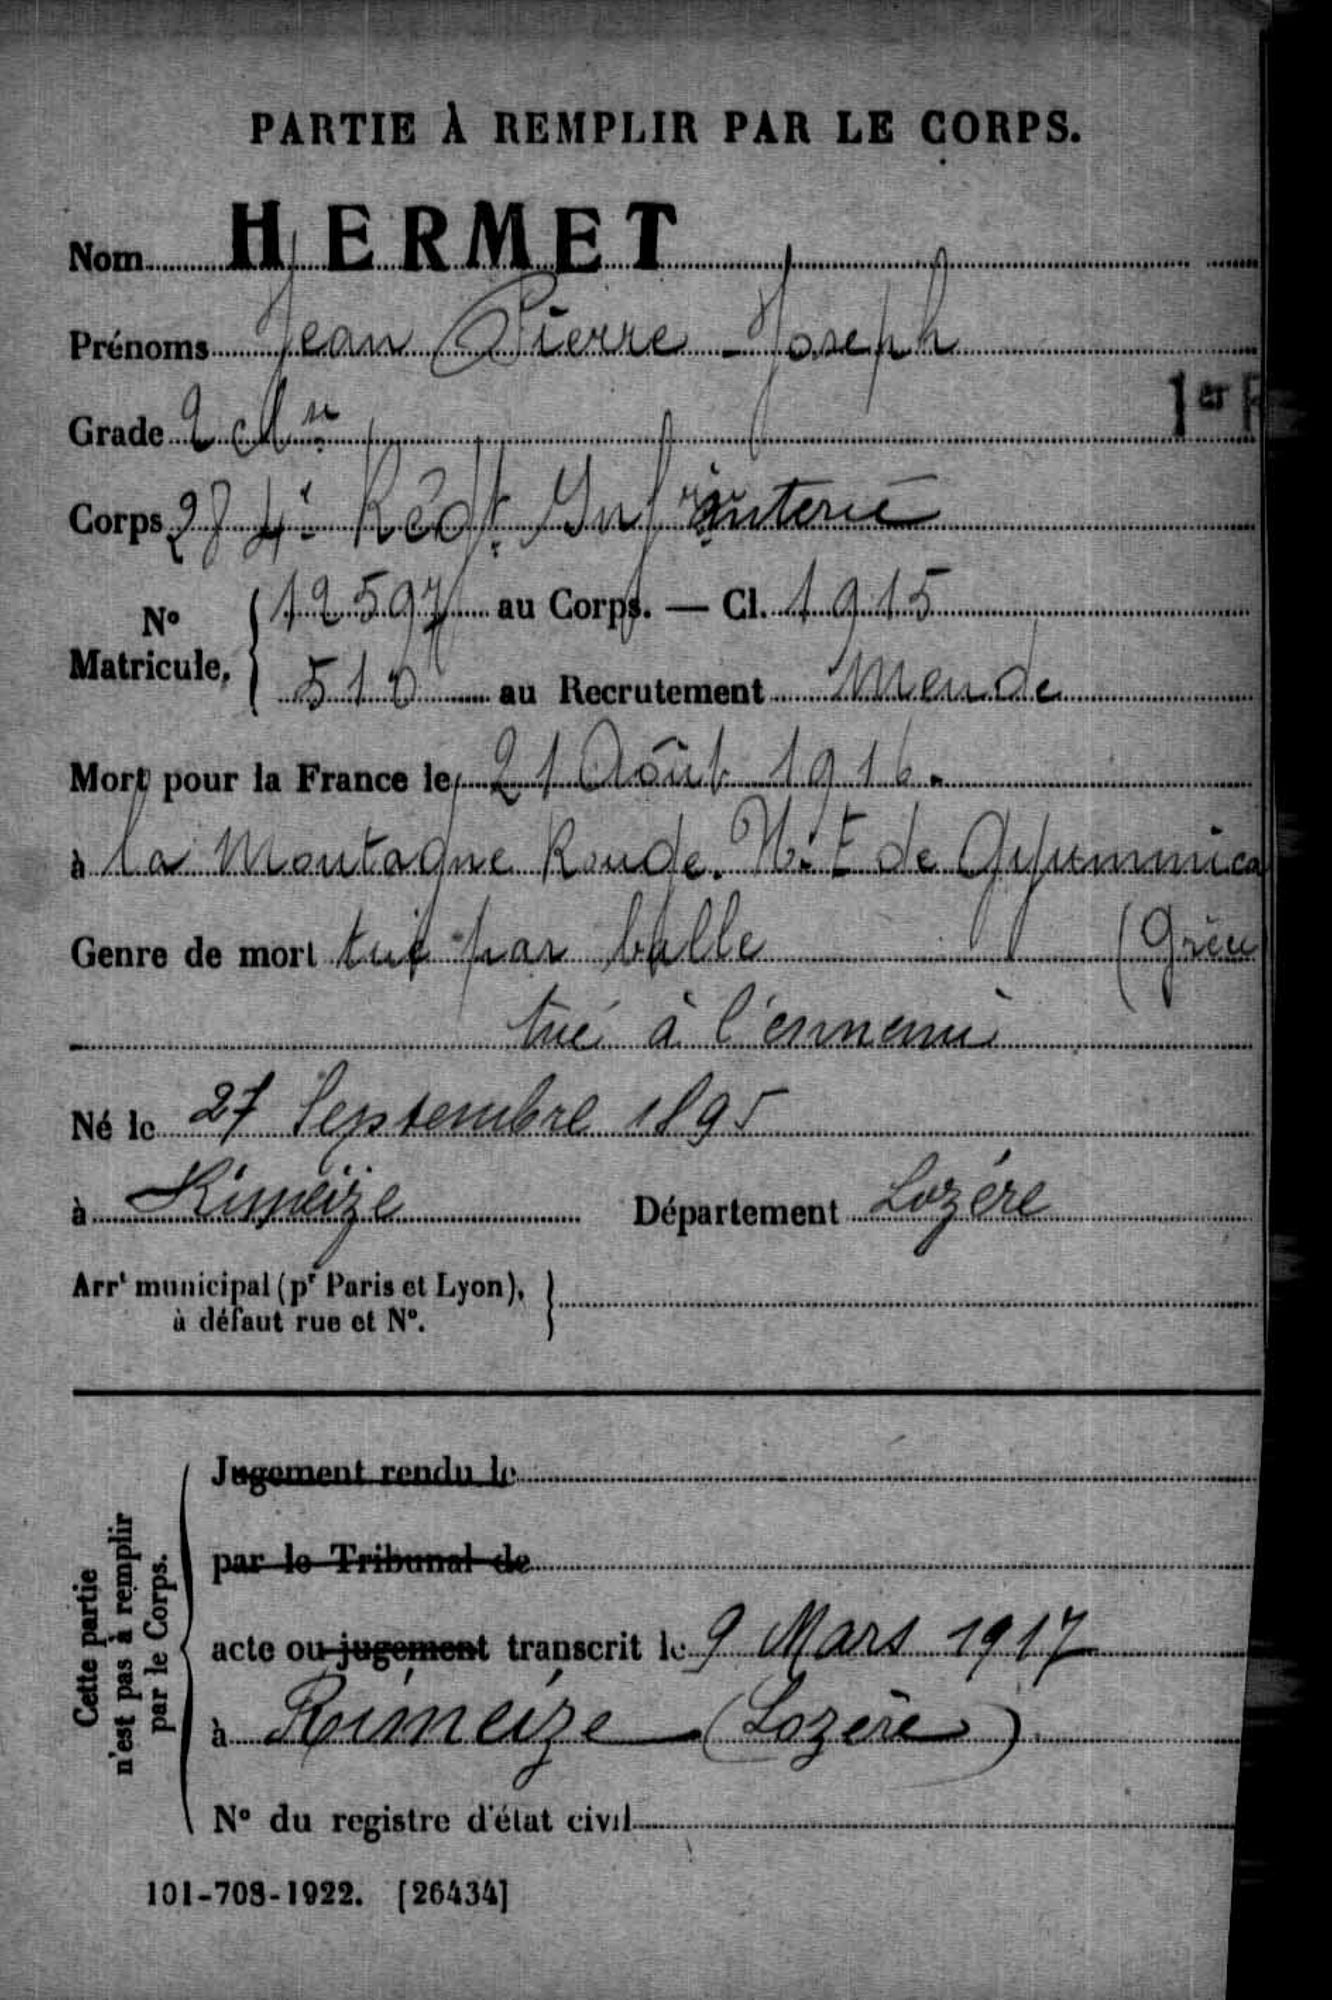 PARTIE À REMPLIR PAR LE CORPS.
Nom HERMET
Prénoms Jean Pierre - Joseph
1er R
Grade 2 cl
Corps 284e Régt. Infanterie
N° Matricule, 12597 au Corps. — Cl. 1915
510 au Recrutement Mende
Mort pour la France le 21 Août 1916.
à la Montagne Ronde. N. E de
Genre de mort tué par balle (Grèce
tué à l'ennemi
Né le 27 Septembre 1895
à Rimeize Département Lozère
Arrt municipal (pr Paris et Lyon),
à défaut rue et N°.
Cette partie
n'est pas à remplir
par le Corps.
Jugement rendu le
par le Tribunal de
acte ou jugement transcrit le 9 Mars 1917
à Rimeize (Lozère)
N° du registre d'état civil
101-708-1922. [26434]